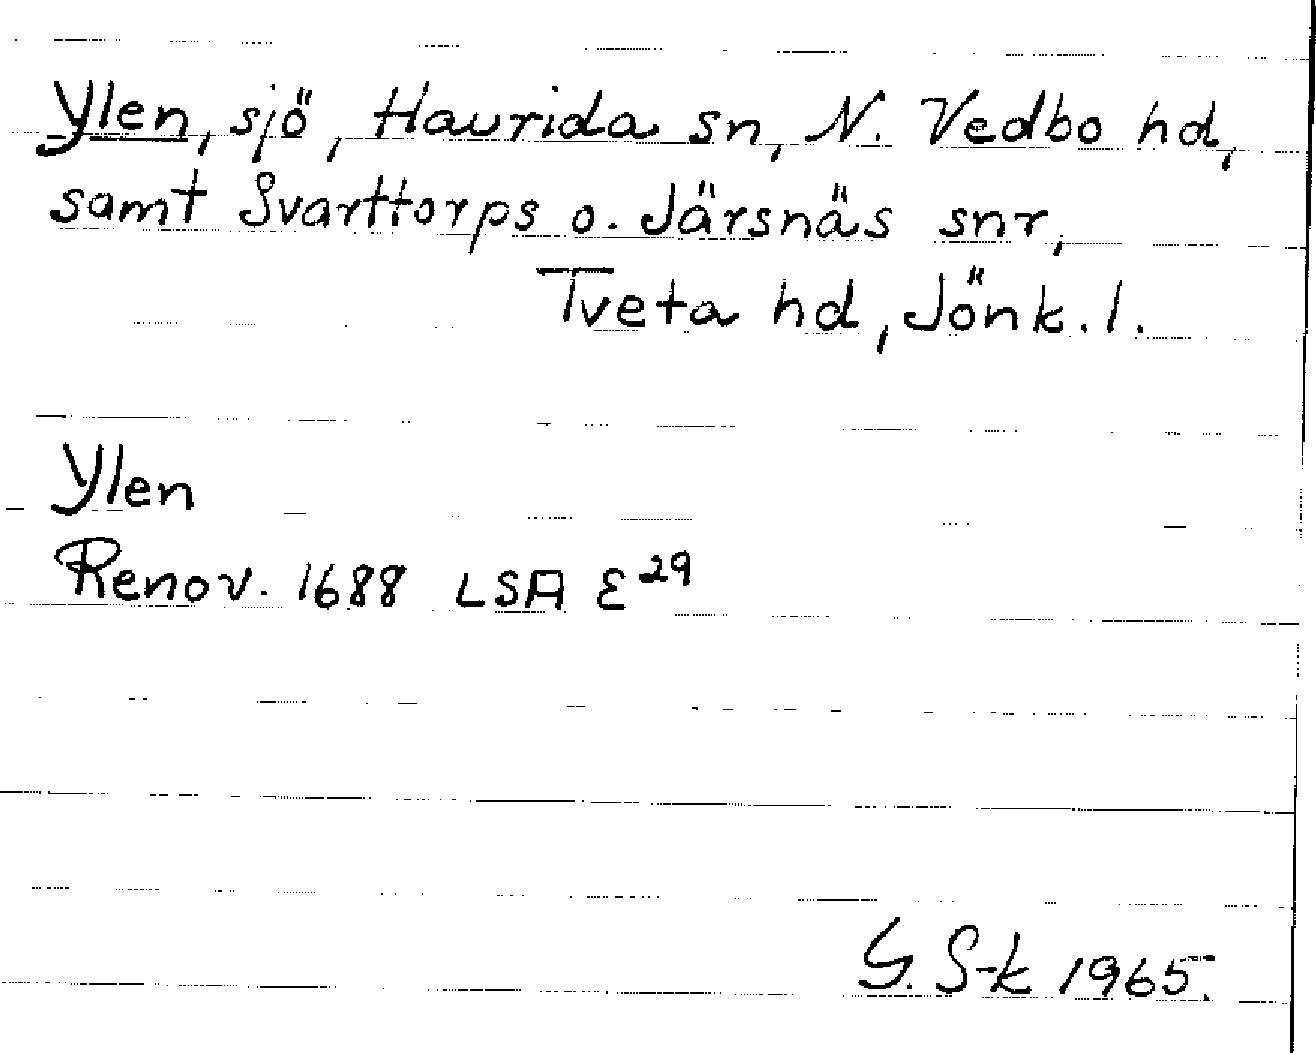 Ylen, sjö, Haurida sn, N. Vedbo hd,
samt Svarttorps o. Järsnäs snr,
Tveta hd, Jönk. l.
Ylen
Renov. 1688 LSA E²⁹
G. S-k 1965.